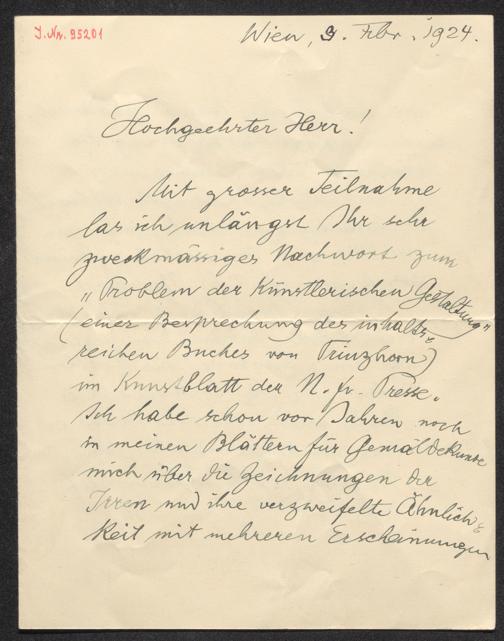 J. Nr. 95201
Wien, 9. Febr. 1924.
Hochgeehrter Herr!
Mit grosser Teilnahme
las ich unlängst Ihr sehr
zweckmässiges Nachwort zum
„Problem der Künstlerischen Gestaltung"
(einer Besprechung des inhalts-
reichen Buches von Prinzhorn)
im Kunstblatt der N. fr. Presse.
Ich habe schon vor Jahren noch
in meinen Blättern für Gemäldekunde
mich über die Zeichnungen der
Irren und ihre verzweifelte Ähnlich-
keit mit mehreren Erscheinungen